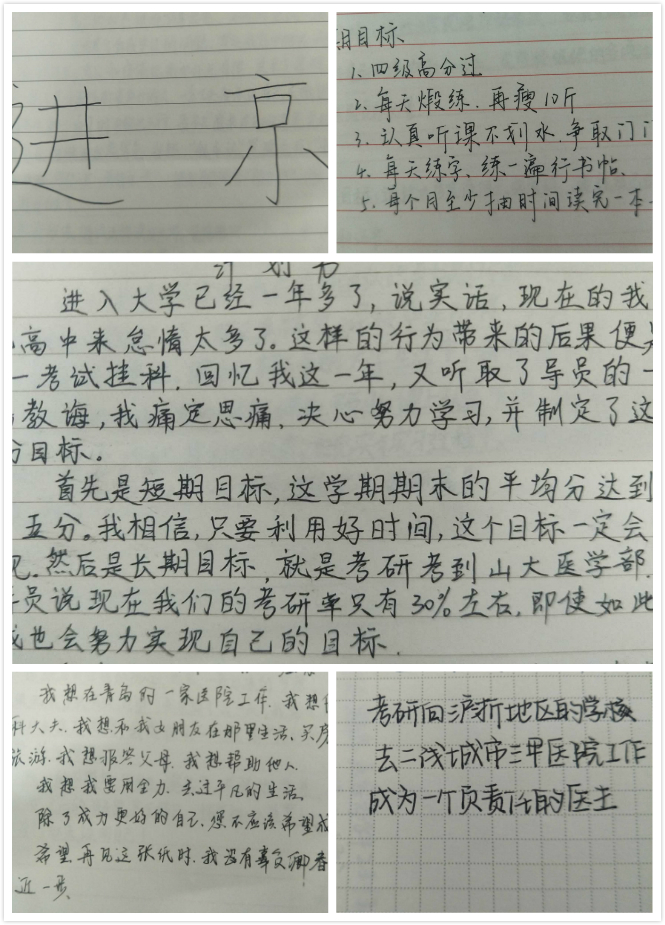 进 京
期目标
1. 四级高分过
2. 每天煅练. 再瘦10斤
3. 认真听课不划水. 争取门门
4. 每天练字、练一遍行书帖.
5. 每个月至少抽时间读完一本
计划书
进入大学已经一年多了, 说实话, 现在的我
高中来怠惰太多了。这样的行为带来的后果便是
一考试挂科. 回忆我这一年, 又听取了导员的一
教诲, 我痛定思痛. 决心努力学习, 并制定了这
分目标。
首先是短期目标, 这学期期末的平均分达到
五分。我相信, 只要利用好时间, 这个目标一定会
见. 然后是长期目标, 就是考研考到山大医学部.
员说现在我们的考研率只有30%左右. 即使如此
我也会努力实现自己的目标.
我想在青岛的一家医院工作. 我想
科大夫. 我想和我女朋友在那里生活、买房
旅游. 我想报答父母. 我想帮助他人.
我想我要用全力. 去过平凡的生活.
除了成为更好的自己. 您不应该希望成
希望再见这张纸时. 我没有辜负卿卿
近一步
考研回沪浙地区的学校
去二线城市三甲医院工作
成为一个负责任的医生